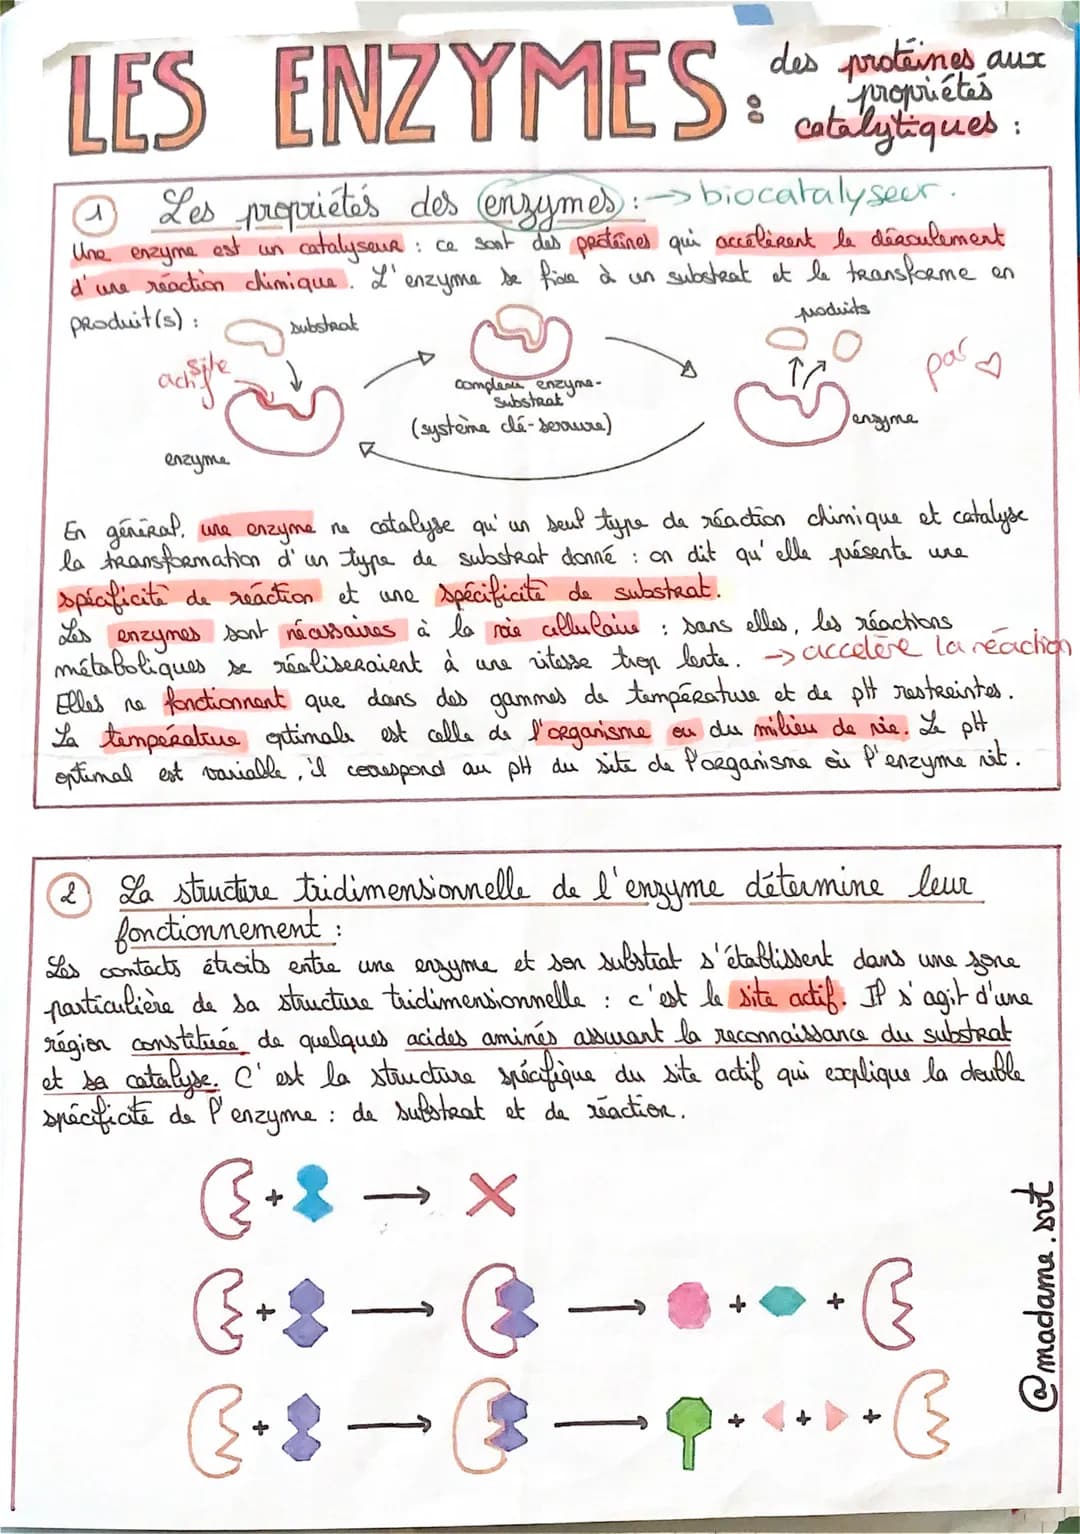 LES ENZYMES :
des protéines aux
propriétés
catalytiques :
1 Les propriétés des enzymes : → biocatalyseur.
Une enzyme est un catalyseur : ce sont des protéines qui accélèrent le déroulement
d'une réaction chimique. L'enzyme se fixe à un substrat et le transforme en
produit(s) :
substrat
produits
site
actif
complexe enzyme-
substrat
(système clé-serrure)
enzyme
enzyme
par ♡
En général, une enzyme ne catalyse qu'un seul type de réaction chimique et catalyse
la transformation d'un type de substrat donné : on dit qu'elle présente une
spécificité de réaction et une spécificité de substrat.
Les enzymes sont nécessaires à la vie cellulaire : sans elles, les réactions
métaboliques se réaliseraient à une vitesse trop lente. → accélère la réaction
Elles ne fonctionnent que dans des gammes de température et de pH restreintes.
La température optimale est celle de l'organisme ou du milieu de vie. Le pH
optimal est variable, il correspond au pH du site de l'organisme où l'enzyme vit.
2 La structure tridimensionnelle de l'enzyme détermine leur
fonctionnement :
Les contacts étroits entre une enzyme et son substrat s'établissent dans une zone
particulière de sa structure tridimensionnelle : c'est le site actif. Il s'agit d'une
région constituée de quelques acides aminés assurant la reconnaissance du substrat
et sa catalyse. C'est la structure spécifique du site actif qui explique la double
spécificité de l'enzyme : de substrat et de réaction.
+ → X
+ → → + +
+ → → + + +
@madame.svt